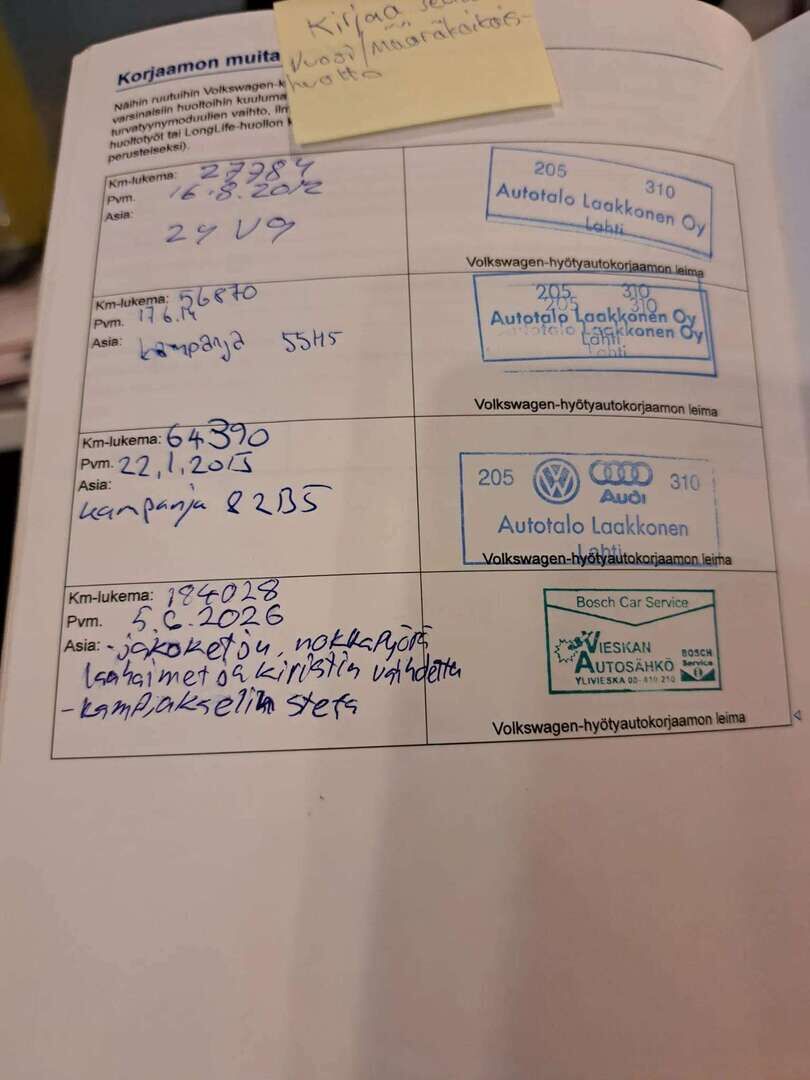 Kirjaa
Vuosi/Määräkaikais-
huolto
Korjaamon muita
Näihin ruutuihin Volkswagen-k
varsinaisiin huoltoihin kuuluma
turvatyynymoduulien vaihto, ilm
huoltotyöt tai LongLife-huollon k
perusteiseksi).
Km-lukema: 27784
Pvm. 16.8.2012
Asia:
205 310
Autotalo Laakkonen Oy
Lahti
Volkswagen-hyötyautokorjaamon leima
Km-lukema: 56870
Pvm. 17.6.14
Asia: kampanja 55H5
205 310
Autotalo Laakkonen Oy
Lahti
Volkswagen-hyötyautokorjaamon leima
Km-lukema: 64390
Pvm. 22.1.2015
Asia:
kampanja 82B5
205 Audi 310
Autotalo Laakkonen
Lahti
Volkswagen-hyötyautokorjaamon leima
Km-lukema: 184028
Pvm. 5.6.2026
Asia: - jakoketju, nokkapyörä
laahaimet ja kiristin vaihdettu
- kampiakselin stefa
Bosch Car Service
VIESKAN
AUTOSÄHKÖ
BOSCH
Service
YLIVIESKA 08-410 210
Volkswagen-hyötyautokorjaamon leima